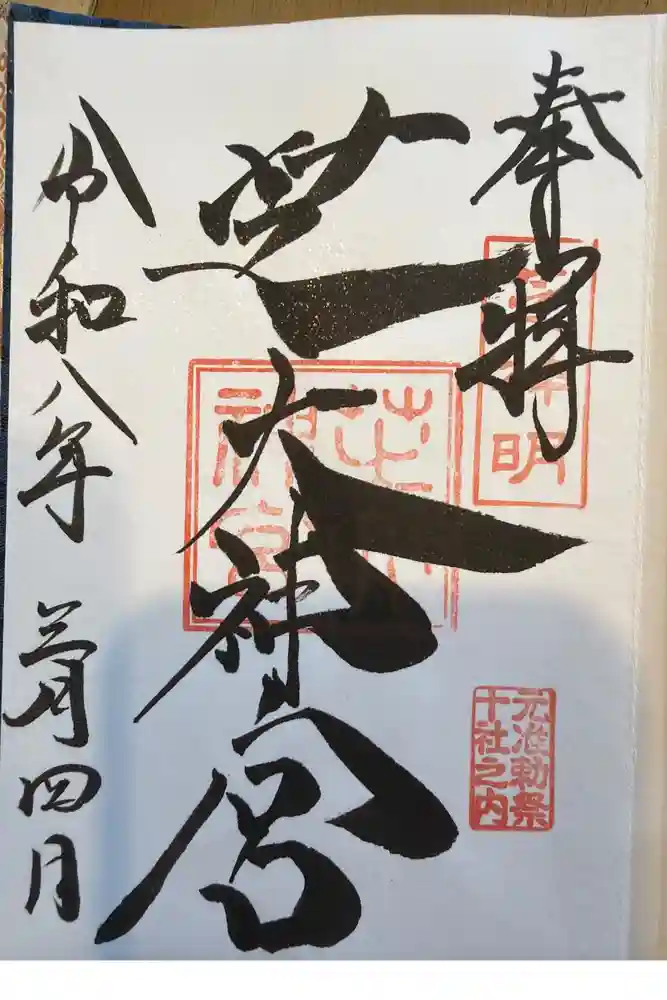 奉拝
芝神明
芝大神宮
芝大神宮
元准勅祭
十社之内
令和八年 三月四日